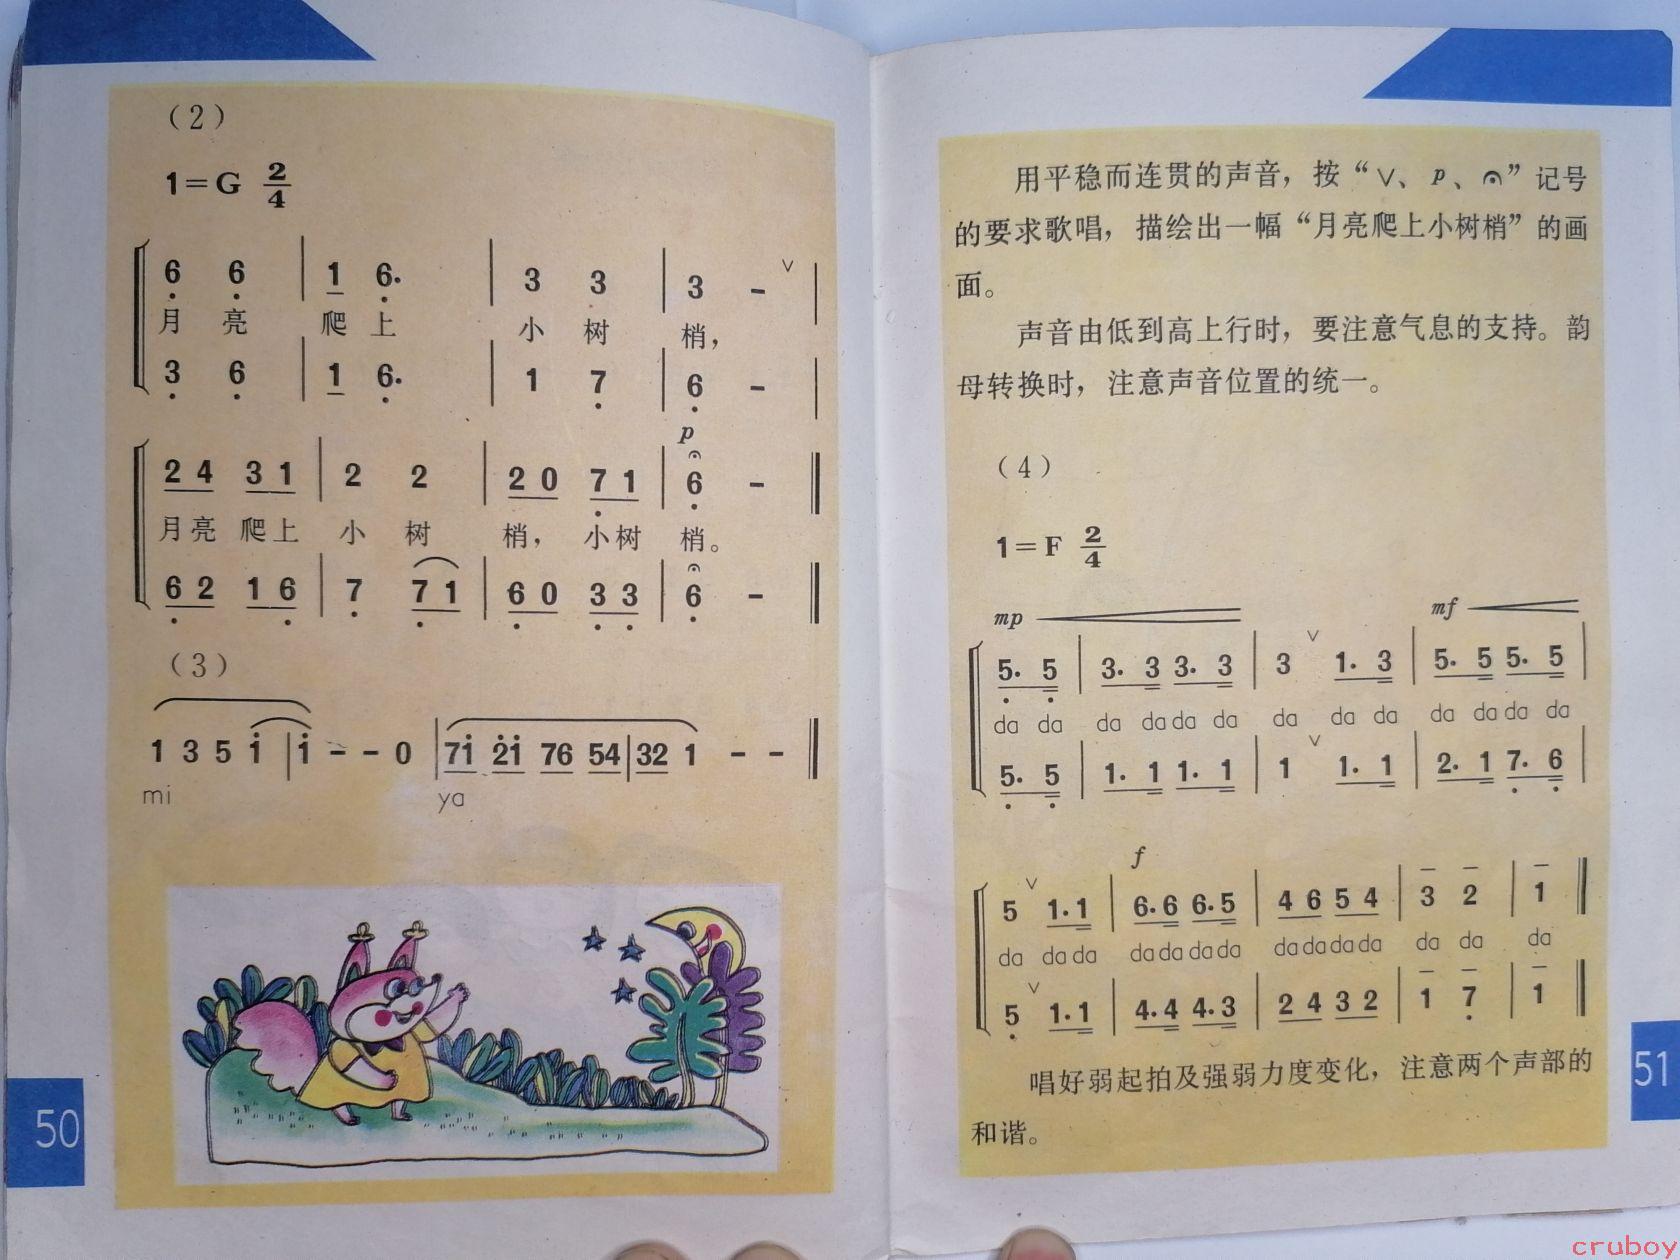 (2)
1=G 2/4
6̣ 6̣ | 1 6̣. | 3 3 | 3 - ∨ |
月 亮 爬 上 小 树 梢，
3̣ 6̣ | 1 6̣. | 1 7̣ | 6̣ - |
p
2 4 3 1 | 2 2 | 2 0 7̣ 1 | 6̣ - ‖
月亮 爬上 小 树 梢， 小树 梢。
6̣ 2 1 6̣ | 7̣ 7̣ 1 | 6̣ 0 3̣ 3̣ | 6̣ - ‖
(3)
1 3 5 i | i - - 0 | 7i 2̇i 76 54 | 32 1 - - ‖
mi ya
50
用平稳而连贯的声音，按“∨、p、𝄐”记号
的要求歌唱，描绘出一幅“月亮爬上小树梢”的画
面。
声音由低到高上行时，要注意气息的支持。韵
母转换时，注意声音位置的统一。
(4)
1=F 2/4
mp mf
5̣. 5̣ | 3. 3 3. 3 | 3 ∨ 1. 3 | 5. 5 5. 5 |
da da da da da da da da da da da da da
5̣. 5̣ | 1. 1 1. 1 | 1 ∨ 1. 1 | 2. 1 7̣. 6̣ |
f
5 ∨ 1. 1 | 6. 6 6. 5 | 4 6 5 4 | 3 2 | 1 ‖
da da da da da da da da da da da da da da
5̣ ∨ 1. 1 | 4. 4 4. 3 | 2 4 3 2 | 1 7̣ | 1 ‖
唱好弱起拍及强弱力度变化，注意两个声部的
和谐。
51
cruboy